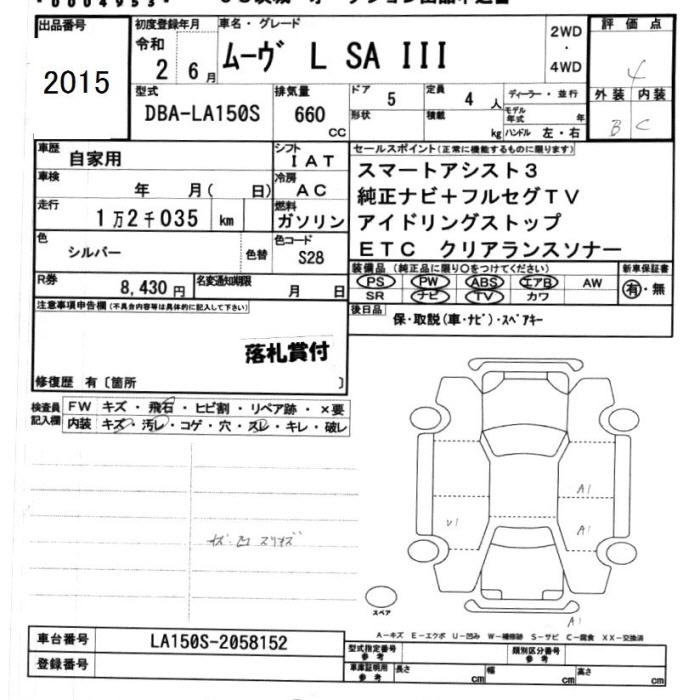 出品番号
2015
初度登録年月
令和
2 6月
車名・グレード
ムーヴ L SA III
2WD
・
4WD
評価点
4
外装 内装
B C
型式
DBA-LA150S
排気量
660
CC
ドア
5
形状
定員
4 人
積載
kg
ディーラー・並行
モデル年式 年
ハンドル 左・右
車歴
自家用
シフト
IAT
車検
年 月( 日)
冷房
AC
走行
1万2千035 km
燃料
ガソリン
色
シルバー
色替
色コード
S28
R券
8,430円
名変通知期限
月 日
セールスポイント(正常に機能するものに限ります)
スマートアシスト3
純正ナビ+フルセグTV
アイドリングストップ
ETC クリアランスソナー
装備品(純正品に限り○をつけてください)
新車保証書
PS PW ABS エアB AW
SR ナビ TV カワ
有・無
後日品
保・取説(車・ナビ)・スペアキー
注意事項申告欄(不具合内容等は具体的に記入して下さい)
落札賞付
修復歴 有〔箇所 〕
検査員記入欄
FW キズ・飛石・ヒビ割・リペア跡・×要
内装 キズ・汚レ・コゲ・穴・スレ・キレ・破レ
A1
A1
U1
A1
スペア
A-キズ E-エクボ U-凹み W-補修跡 S-サビ C-腐食 XX-交換済
車台番号
LA150S-2058152
登録番号
型式指定番号
参考
類別区分番号
参考
車庫証明用
参考
長さ cm
幅 cm
高さ cm